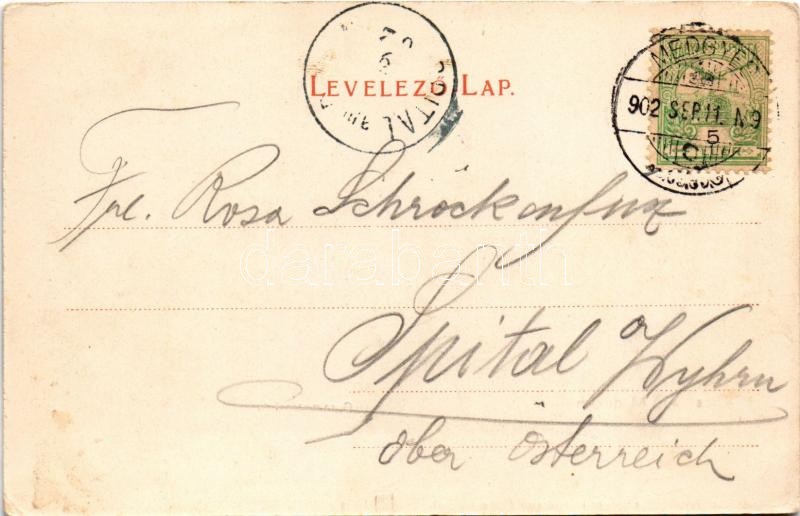 LEVELEZŐ-LAP.
SPITAL
MEDGYES
902 SEP. 11. N 9
5
Frl. Rosa Schröckenfux
darabanth
Spital a/Pyhrn
ober Österreich